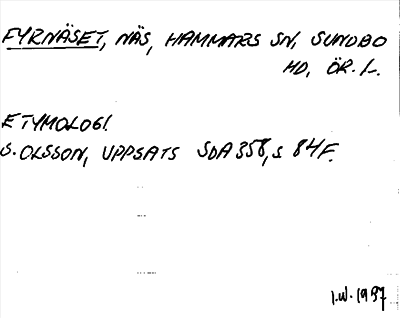 FYRNÄSET, NÄS, HAMMARS SN, SUNDBO
HD, ÖR. L.
ETYMOLOGI.
S. OLSSON, UPPSATS SDA 358, S 84 F.
I.W. 1937